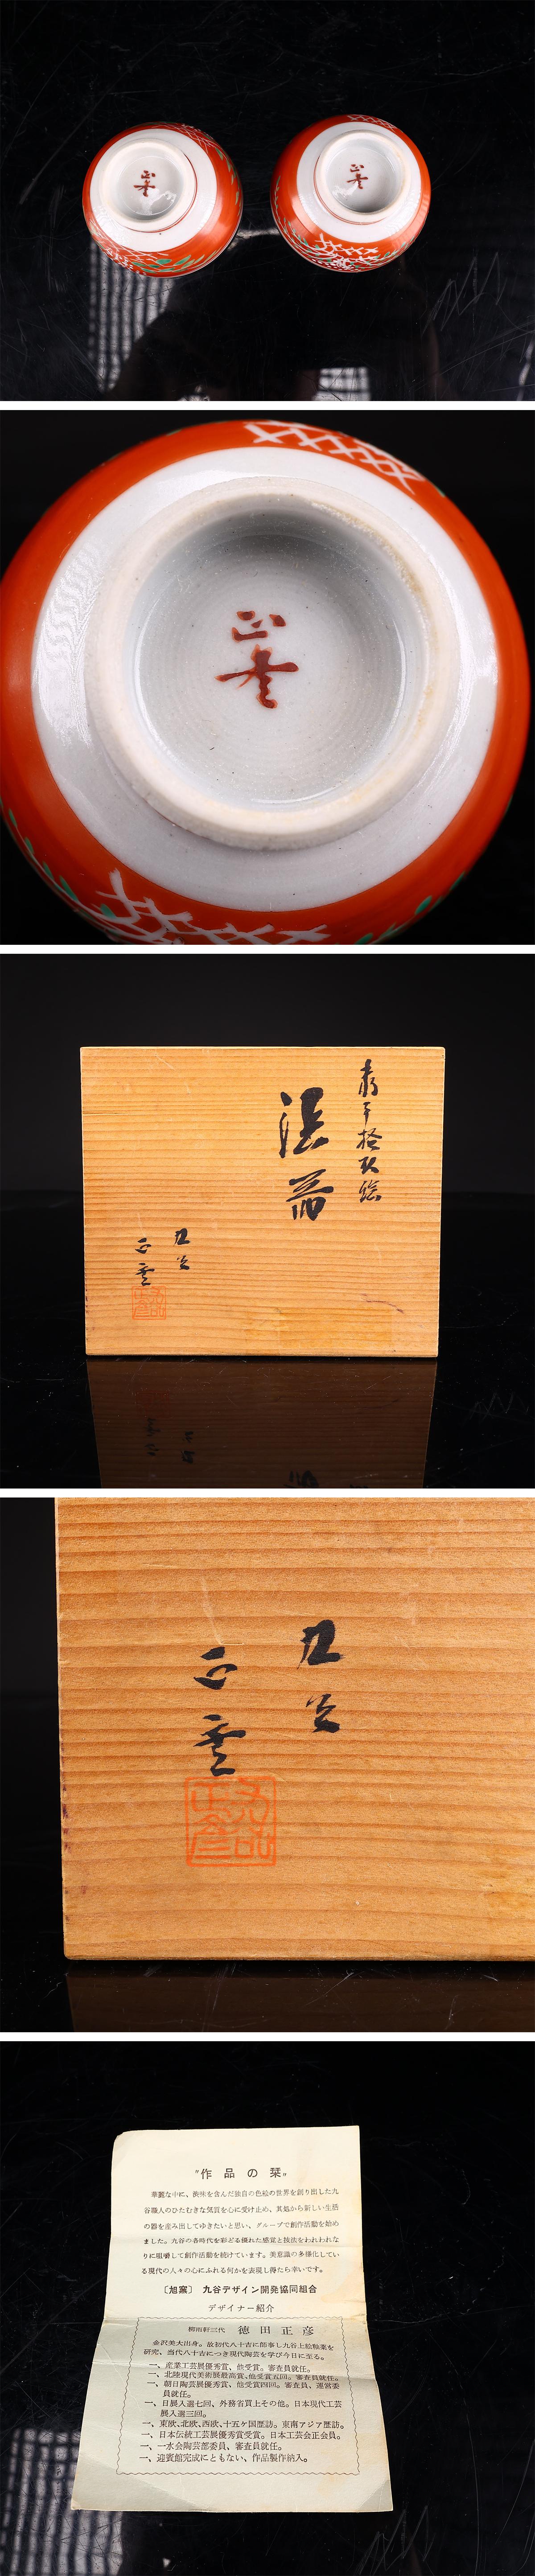 九谷
正雲
九谷
正雲
〝作品の栞〟
華麗な中に、渋味を含んだ独自の色絵の世界を創り出した九
谷職人のひたむきな気質を心に受け止め、其処から新しい生活
の器を産み出してゆきたいと思い、グループで創作活動を始め
ました。九谷の各時代を彩どる優れた感覚と技法をわれわれな
りに咀嚼して創作活動を続けています。美意識の多様化してい
る現代の人々の心にふれる何かを表現し得たら幸いです。
〔旭窯〕 九谷デザイン開発協同組合
デザイナー紹介
三代 徳田正彦
金沢美大出身。故初代八十吉に師事し九谷上絵釉薬を
研究、当代八十吉につき現代陶芸を学び今日に至る。
一、産業工芸展優秀賞、他受賞。審査員就任。
一、北陸現代美術展最高賞、他受賞五回。審査員就任。
一、朝日陶芸展優秀賞、他受賞四回。審査員、運営委
員就任。
一、日展入選七回、外務省買上その他。日本現代工芸
展入選三回。
一、東欧、北欧、西欧、十五ケ国歴訪。東南アジア歴訪。
一、日本伝統工芸展優秀賞受賞。日本工芸会正会員。
一、一水会陶芸部委員、審査員就任。
一、迎賓館完成にともない、作品製作納入。